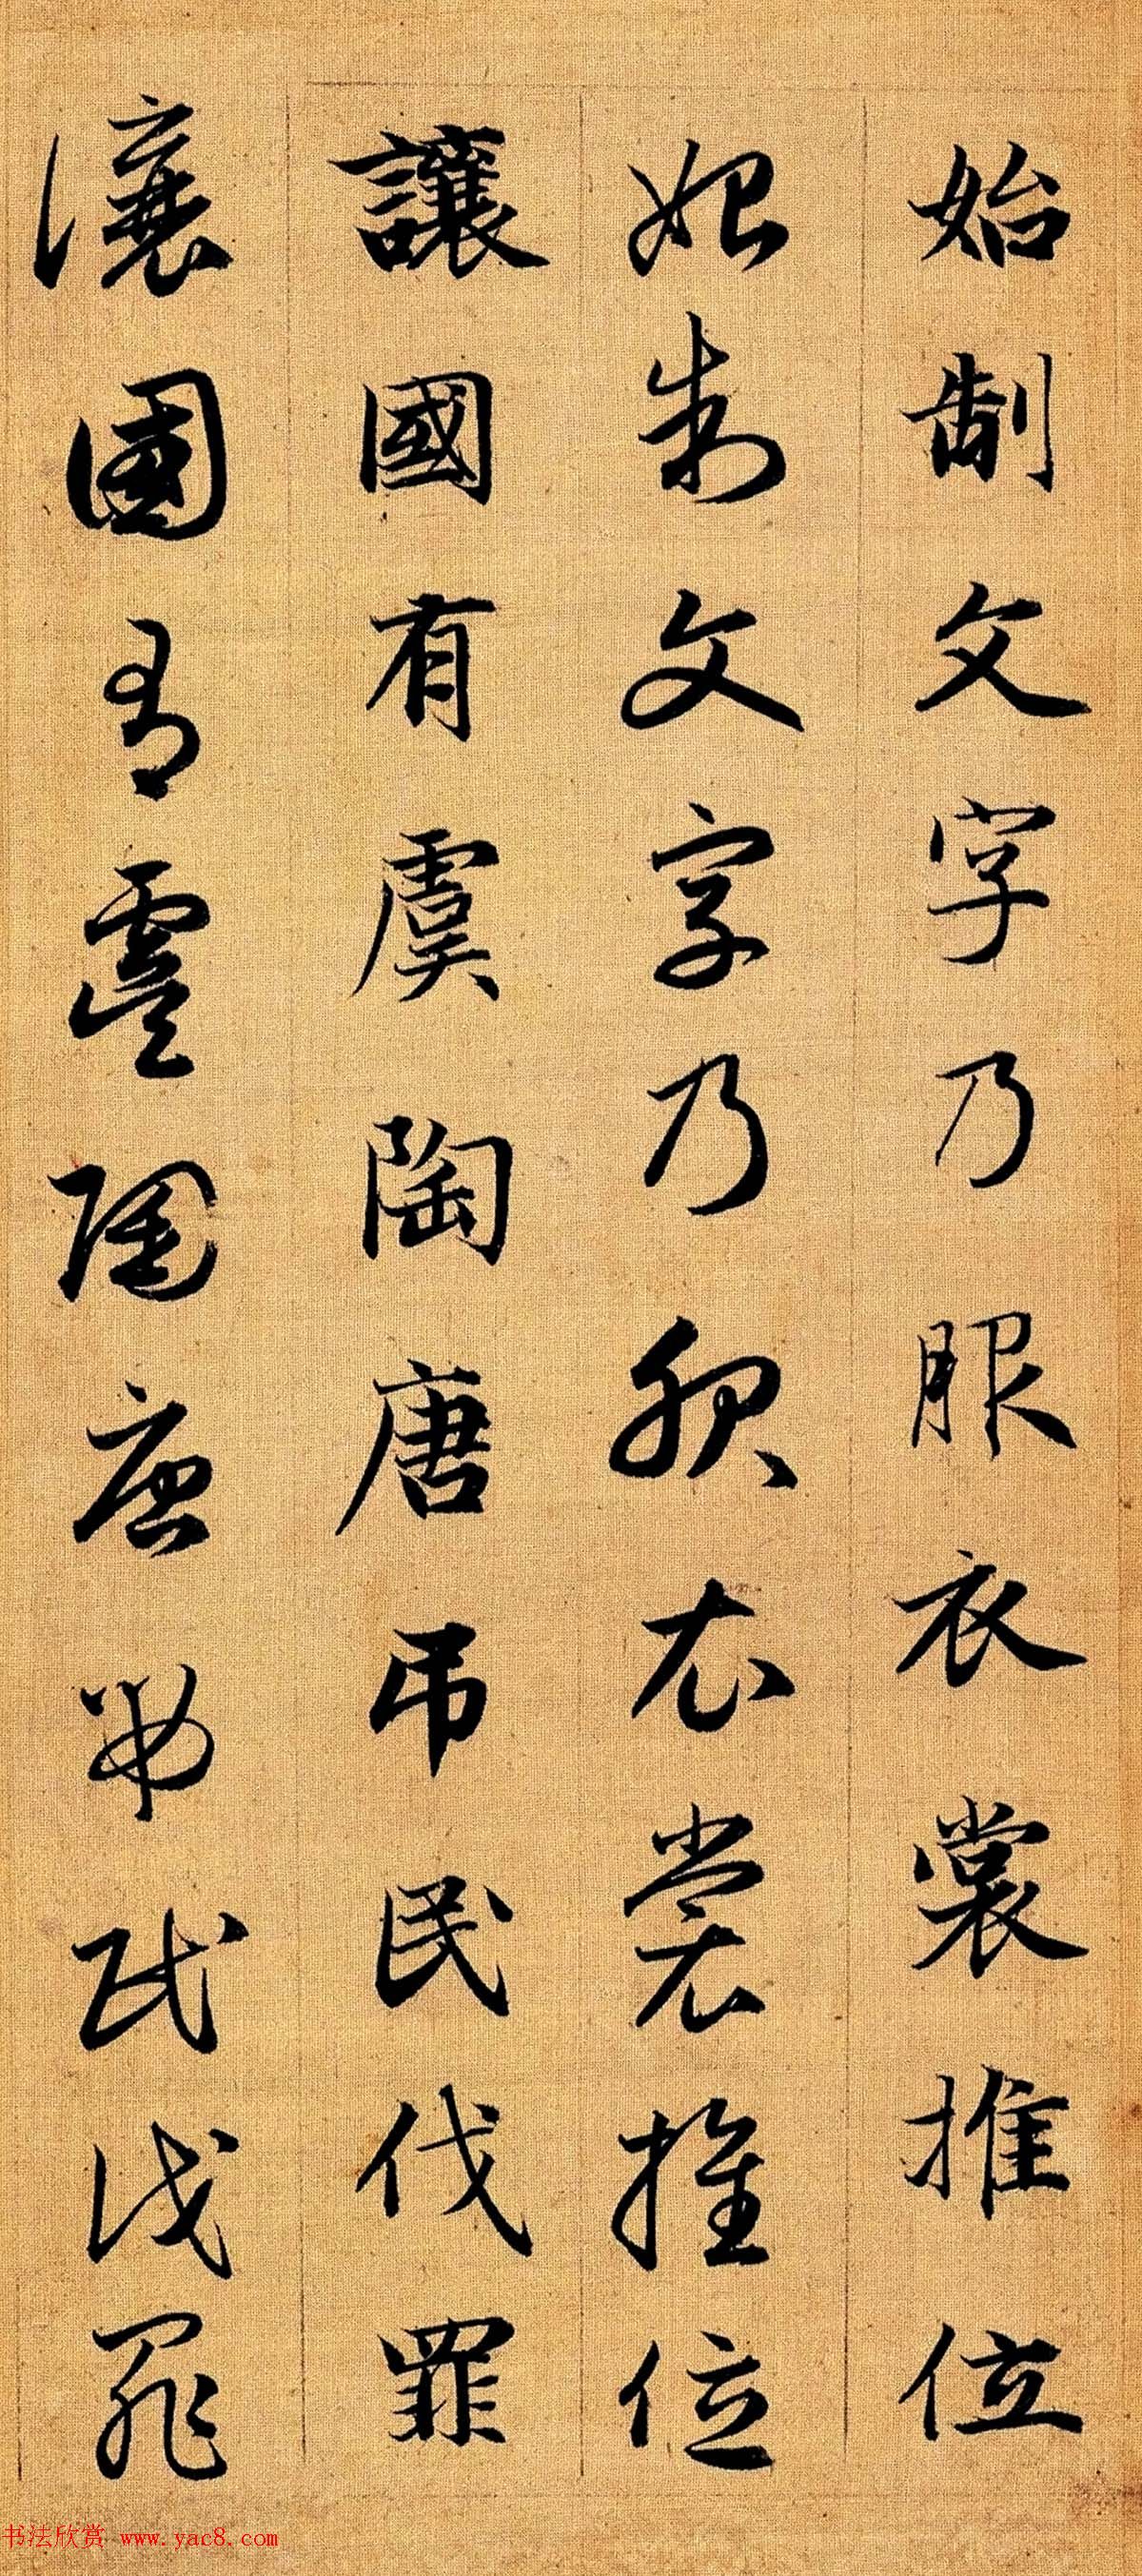 始制文字乃服衣裳推位
始制文字乃服衣裳推位
讓國有虞陶唐弔民伐罪
讓國有虞陶唐弔民伐罪
书法欣赏 www.yac8.com